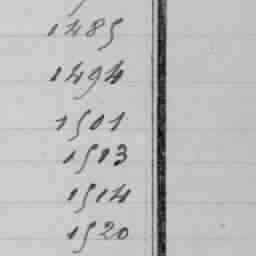 1485
1494
1501
1513
1514
1520